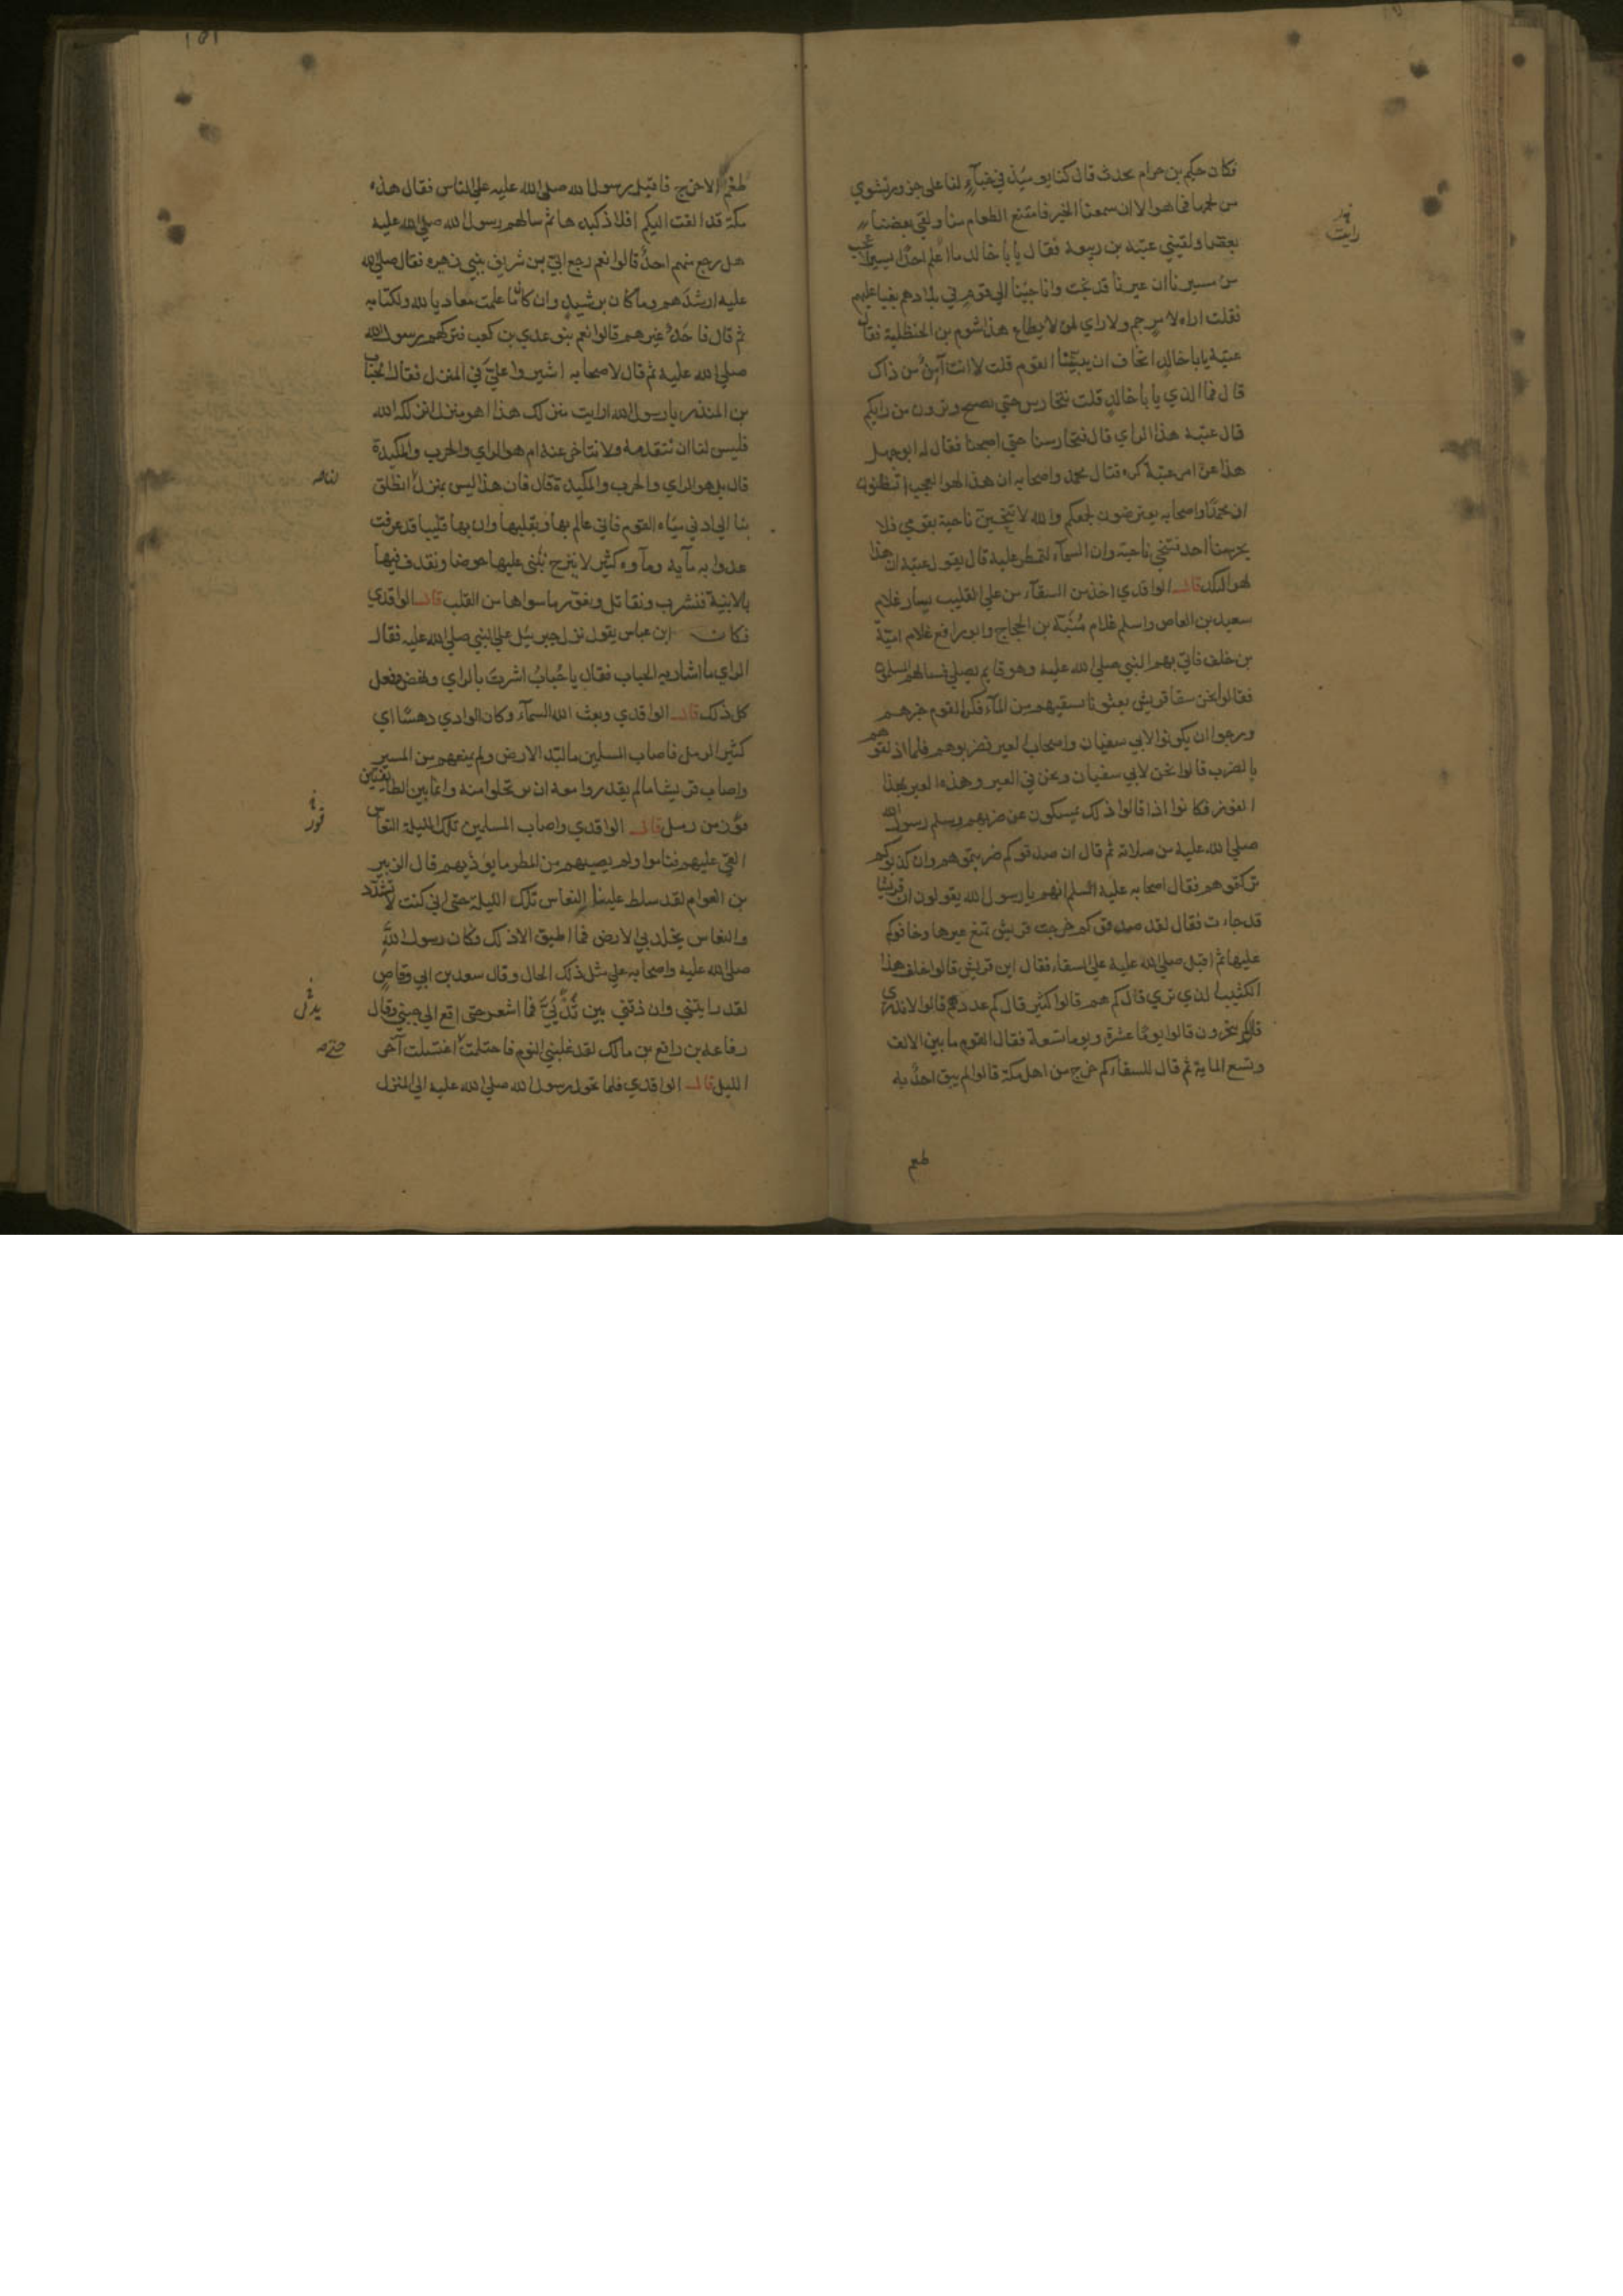 فكان حكيم بن حزام يحدث قال كنا يوميذ في خبآء لنا على جزور نشوي
من لحمها فما هوا لا ان سمعنا الخبر فامتنع الطعام منا ولقي بعضنا
بعضا ولقيني عتبة بن ربيعة فقال يا با خالد ما اعلم احدا يسير اعجب
من مسيرنا ان عيرنا قد نجت وانا جينا الى قوم في بلادهم بغيا عليهم
فقلت اراه لامر حم ولا راي لمن لا يطاع هذا شوم بن الحنظلية فقال
عتبة يا با خالد اتخاف ان يبيتنا القوم قلت لا انت آمن من ذاك
قال فما الراي يا با خالد قلت نتحارس حتي نصبح وترون من رايكم
قال عتبة هذا الراي قال فتحارسنا حتي اصبحنا فقال له ابو جهل
هذا عن امر عتبة كره قتال محمد واصحابه ان هذا لهو العجب اتظنون
ان محمدا واصحابه يعترضون لجمعكم والله لا تنحين ناحية بقومي فلا
يحرسنا احد فتنحي ناحية وان السمآء لتمطر عليه قال يقول عتبة ان هذا
لهو النكد قال الواقدي اخذ من السقآء من علي القليب يسار غلام
سعيد بن العاص واسلم غلام منبه بن الحجاج وابو رافع غلام امية
بن خلف فاتي بهم النبي صلي الله عليه وهو قايم يصلي فسالهم المسلمون
فقالوا نحن سقا قريش بعثونا نسقيهم من المآء فكره القوم خبرهم
ورجوا ان يكونوا لابي سفيان واصحاب العير فضربوهم فلما اذلقوهم
بالضرب قالوا نحن لابي سفيان ونحن في العير وهذه العير بهذا
القوز فكانوا اذا قالوا ذلك يمسكون عن ضربهم وسلم رسول الله
صلي الله عليه من صلاته ثم قال ان صدقوكم ضربتموهم وان كذبوكم
تركتموهم فقال اصحابه عليه السلم انهم يا رسول الله يقولون ان قريشا
قد جاءت فقال لقد صدقوكم خرجت قريش تمنع عيرها وخافوكم
عليها ثم اقبل صلي الله عليه علي السقاء فقال اين قريش قالوا خلف هذا
الكثيب الذي تري قال كم هم قالوا كثير قال كم عددهم قالوا لا ندري
قال كم ينحرون قالوا يوما عشرة ويوما تسعة فقال القوم ما بين الالف
وتسع الماية ثم قال للسقاء كم خرج من اهل مكة قالوا لم يبق احد به
طعم
رايت
طعم الا خرج فاقبل رسول الله صلي الله عليه علي الناس فقال هذه
مكة قد القت اليكم افلاذ كبدها ثم سالهم رسول الله صلي الله عليه
هل رجع منهم احد قالوا نعم رجع ابي بن شريق ببني زهره فقال صلي الله
عليه ارشدهم وما كان برشيد وان كان ما علمت معاديا لله ولكتابه
ثم قال فاحد غيرهم قالوا نعم بنو عدي بن كعب فتركهم رسول الله
صلي الله عليه ثم قال لاصحابه اشيروا علي في المنزل فقال الحباب
بن المنذر يا رسول الله ارايت منزلك هذا اهو منزل انزلكه الله
فليس لنا ان نتقدمه ولا نتاخر عنه ام هو الراي والحرب والمكيدة
قال بل هو الراي والحرب والمكيدة قال فان هذا ليس بمنزل انطلق
بنا الي ادني مياه القوم فاني عالم بها وبقليبها وان بها قليبا قد عرفت
عذوبه مآيه ومآوه كثير لا ينزح نبني عليها حوضا ونقذف فيها
بالابنية فنشرب ونقاتل ونغور ما سواها من القلب قال الواقدي
فكان ابن عباس يقول نزل جبرييل علي النبي صلي الله عليه فقال
الراي ما اشار به الحباب فقال يا حباب اشرت بالراي ونهض وفعل
كل ذلك قال الواقدي وبعث الله السمآء وكان الوادي دهسا اي
كثير الرمل فاصاب المسلمين ما لبد الارض ولم يمنعهم من المسير
واصاب قريشا ما لم يقدروا معه ان يرتحلوا منه وانما بين الطايفتين
قوز من رمل قال الواقدي واصاب المسلمين تلك الليلة النعاس
القي عليهم فناموا ولم يصيبهم من المطر ما يوذيهم قال الزبير
بن العوام لقد سلط علينا النعاس تلك الليلة حتي اني كنت لا تشدد
والنعاس يجلد بي الارض فما اطيق الا ذلك وكان رسول الله
صلي الله عليه واصحابه علي مثل ذلك الحال وقال سعد بن ابي وقاص
لقد رايتني وان ذقني بين ثديي فما اشعر حتي اقع الي جنبي وقال
رفاعه بن رافع بن مالك لقد غلبني النوم فاحتلمت اغتسلت آخر
الليل قال الواقدي فلما تحول رسول الله صلي الله عليه الي المنزل
قوز